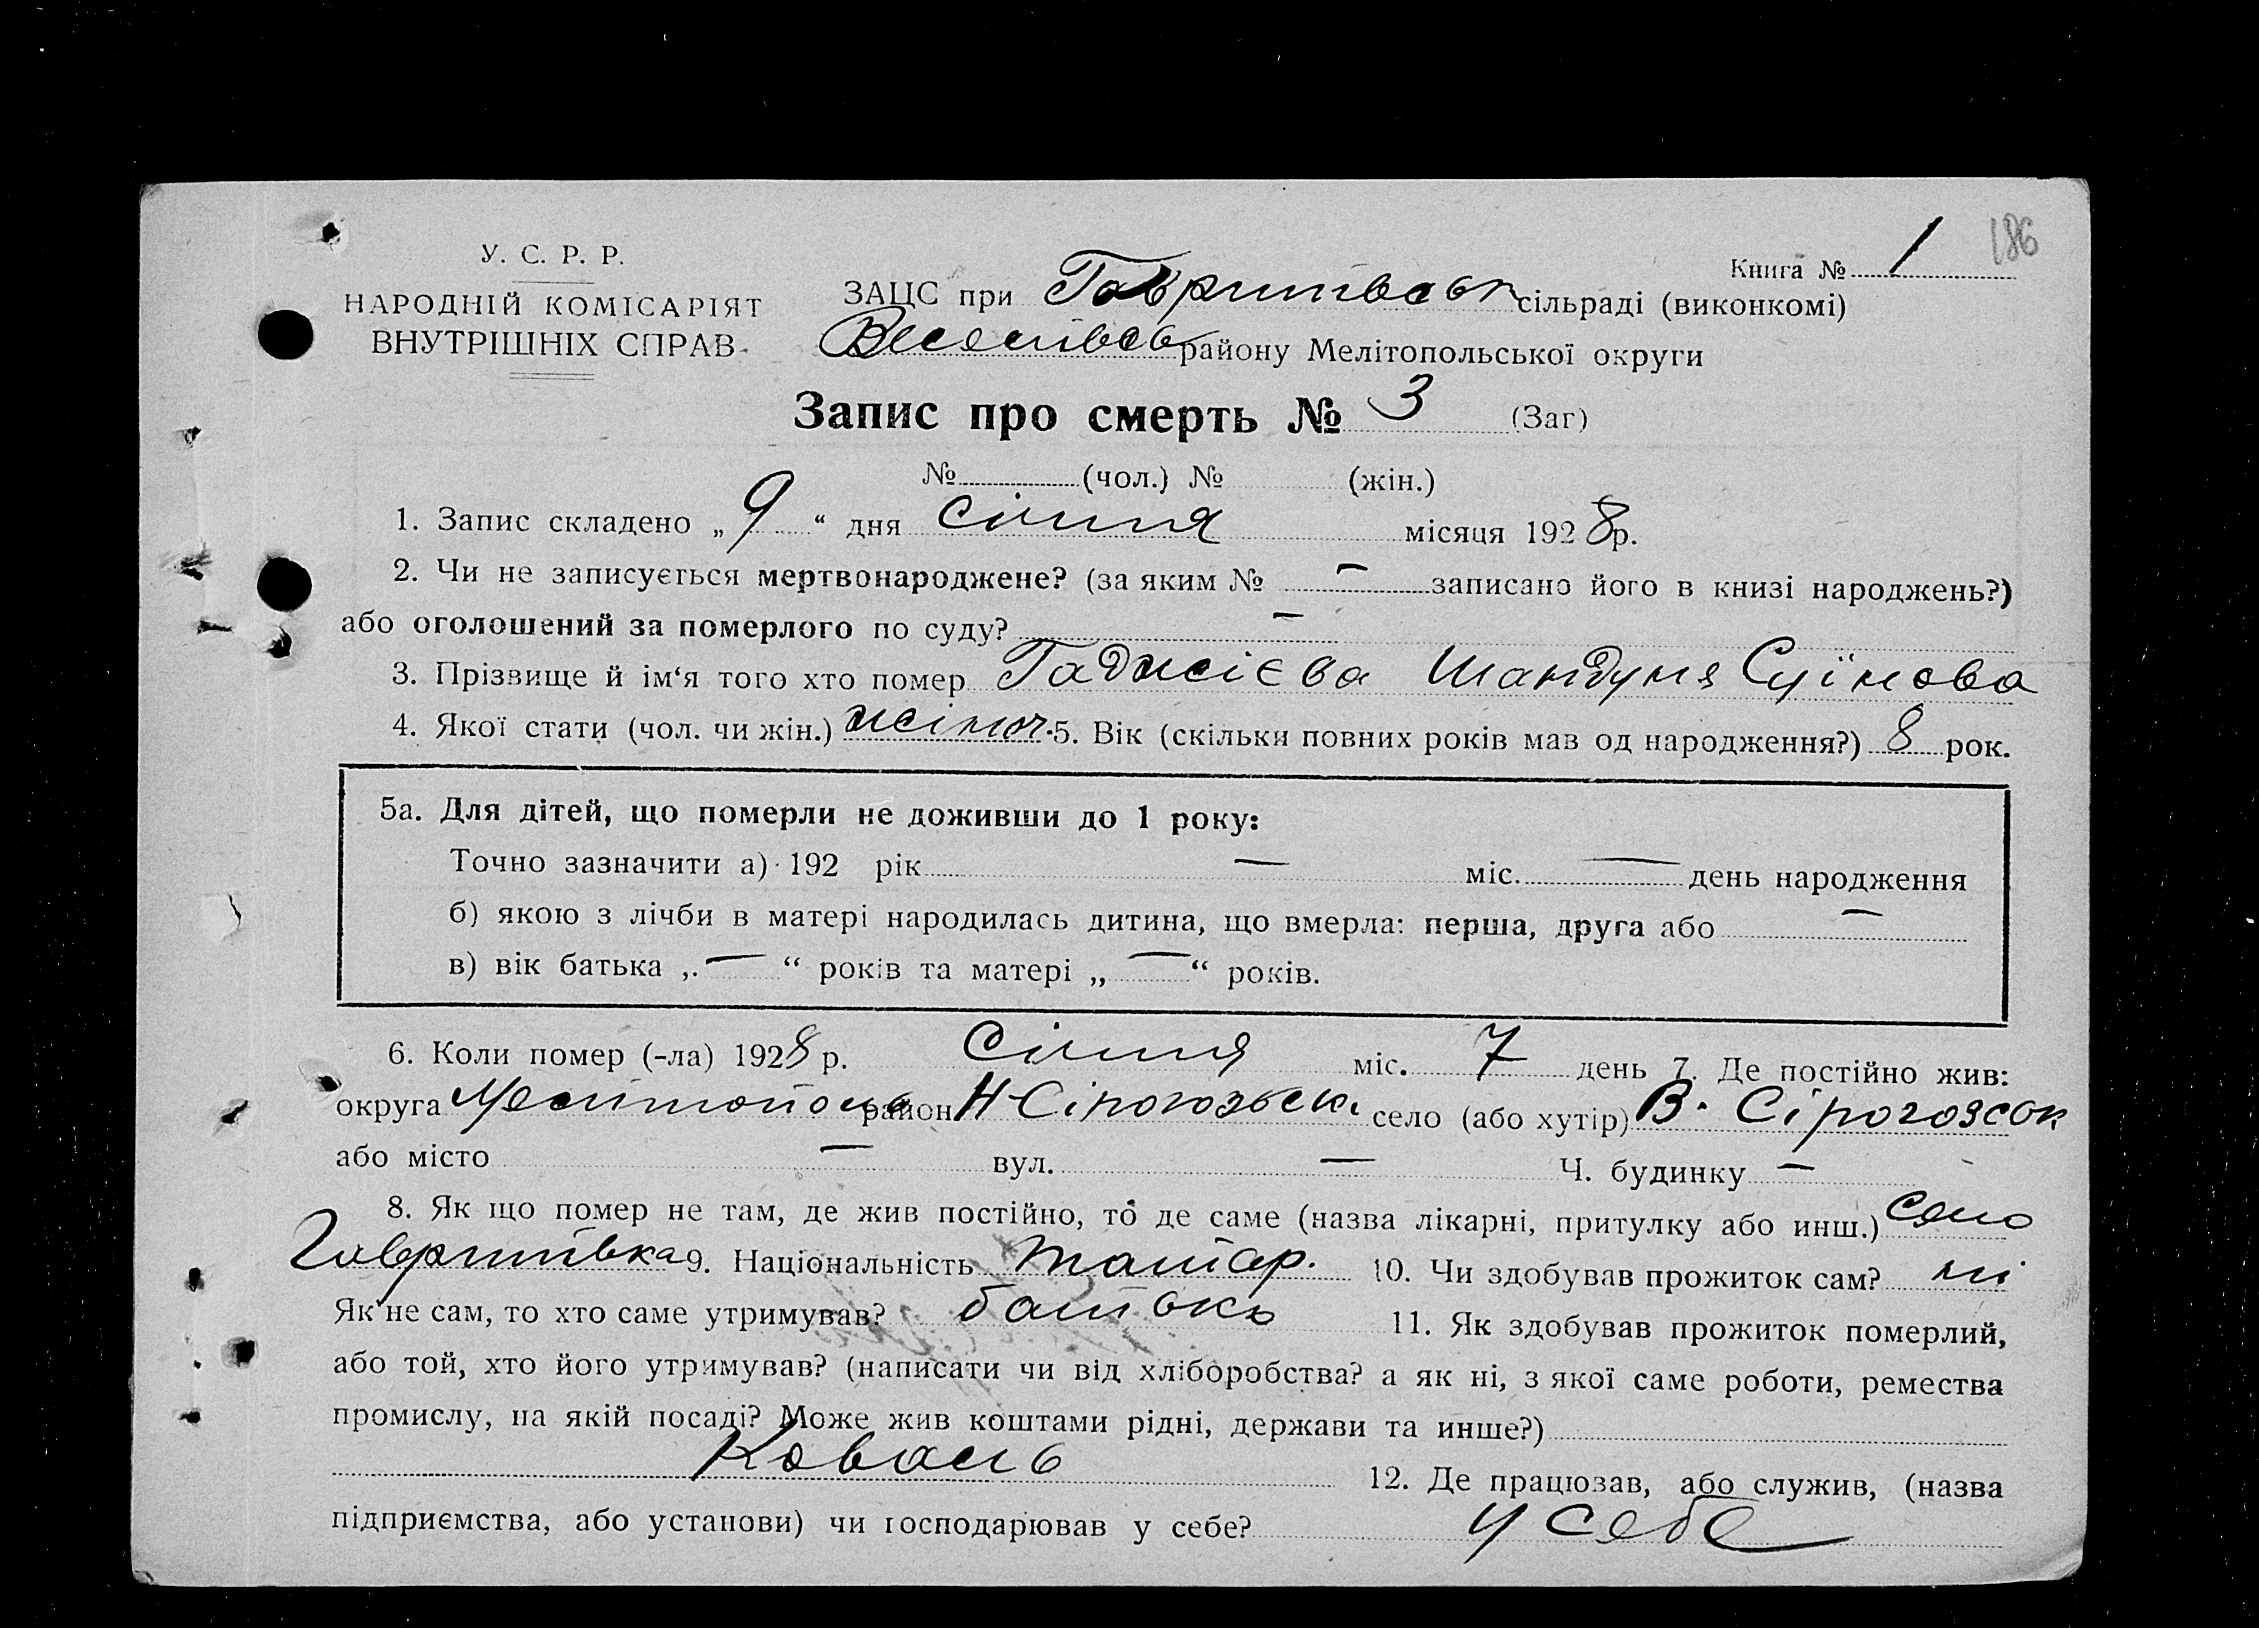 186
У. С. Р. Р.
НАРОДНІЙ КОМІСАРІЯТ
ВНУТРІШНІХ СПРАВ
Книга № 1
ЗАЦС при Гавритівськ сільраді (виконкомі)
Веселівсь району Мелітопольської округи
Запис про смерть № 3 (Заг)
№ (чол.) № (жін.)
1. Запис складено „ 9 “ дня січня місяця 1928 р.
2. Чи не записується мертвонароджене? (за яким № — записано його в книзі народжень?)
або оголошений за померлого по суду? —
3. Прізвище й ім‘я того хто помер Гаджієва
4. Якої стати (чол. чи жін.) жіноч. 5. Вік (скільки повних років мав од народження?) 8 рок.
5а. Для дітей, що померли не доживши до 1 року:
Точно зазначити а) 192 рік — міс. — день народження
б) якою з лічби в матері народилась дитина, що вмерла: перша, друга або —
в) вік батька „ — “ років та матері „ — “ років.
6. Коли помер (-ла) 1928 р. Січня міс. 7 день 7. Де постійно жив:
округа Мелітополь район Н-Сірогозьск. село (або хутір) В. Сірогозсок
або місто — вул. — Ч. будинку —
8. Як що помер не там, де жив постійно, то де саме (назва лікарні, притулку або инш.) село
Гавритівка 9. Національність татар. 10. Чи здобував прожиток сам? ні
Як не сам, то хто саме утримував? батько 11. Як здобував прожиток померлий,
або той, хто його утримував? (написати чи від хліборобства? а як ні, з якої саме роботи, ремества
промислу, на якій посаді? Може жив коштами рідні, держави та инше?)
Коваль 12. Де працював, або служив, (назва
підприємства, або установи) чи господарював у себе? у себе